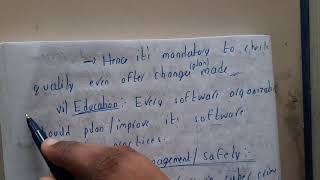 → Hence it's mandatory to check
(plan)
quality even after changes made
vi) Education:- Every software organization
should plan/improve its software
practices.
management/safety:-
in cyber crime